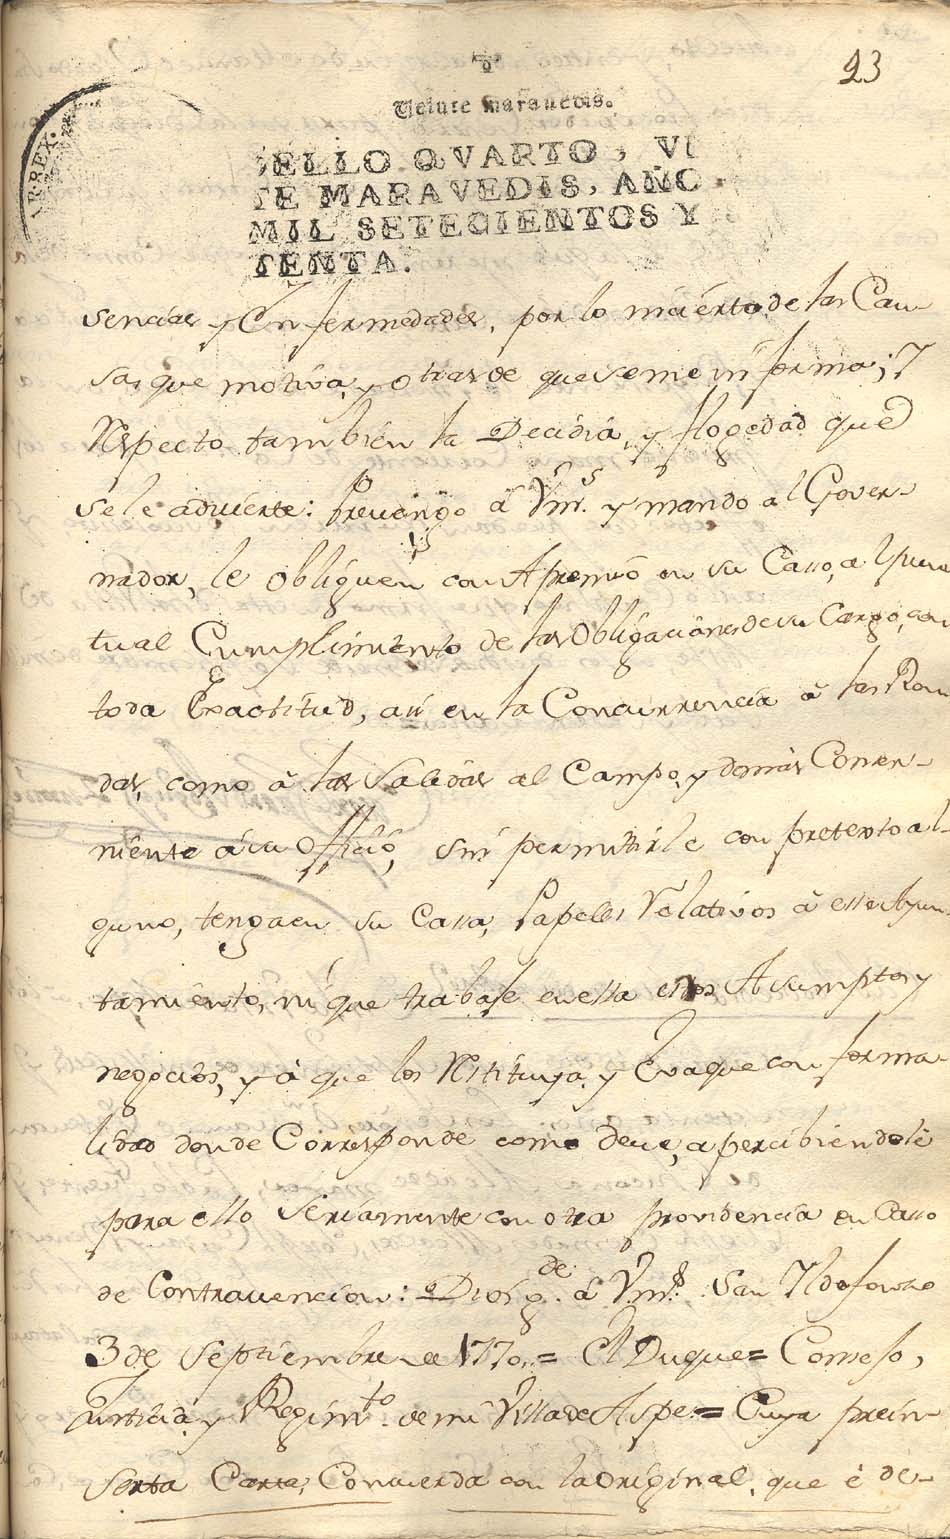 23
Veinte maravedis.
SELLO QVARTO, VI
TE MARAVEDIS, AÑO
MIL SETECIENTOS Y
TENTA.
R.REX.
sencias y Enfermedades, por lo incierto de las Cau
sas que motiva, y otras de que se me informa; Y
Respecto tambien la Decidia, y flogedad que
se le advierte: Prevengo á Vms. y mando al Gover-
nador, le obliguen con Apremio en su Casso, al punc
tual Cumplimiento de las Obligaciones de su Cargo, con
toda Exactitud, asi en la Concurrencia á las Ron
das, como á las Salidas al Campo, y demas Conser-
niente á su Officio, sin permitirle con pretexto al-
guno, tenga en su Cassa, Papeles Relativos á esse Ayun
tamiento, ni que trabaje en ella estos Asumptos y
negocios, y á que los Restituya, y Evaque con forma-
lidad donde Corresponde como deve, apercibiendole
para ello seriamente con otra providencia en Casso
de Contravencion: Dios g.de á Vms. San Yldefonso
3 de Septiembre de 1770.= El Duque= Consejo,
Justicia y Regim.to de mi Villa de Aspe.= Cuya prein-
serta Carta, Concuerda con la Original, que é de-